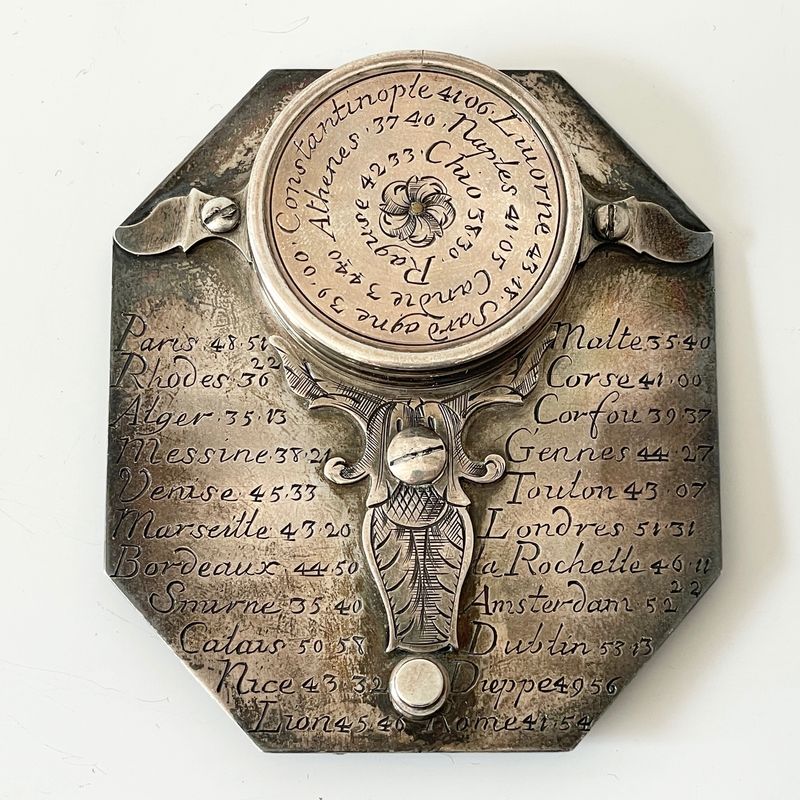 Constantinople 41·06· Livorne 43·18· Sardagne 39·00·
Athenes·37 40· Naples 41·05 Candie 34 40
Raguse 42·33· Chio 38·30·
Paris 48·51
Rhodes 36 22
Alger·35·13
Messine 38·21
Venise 45·33
Marseille 43·20
Bordeaux 44·50
Smirne 35 40
Calais 50 58
Nice 43·32
Lion 45·46
Malte 35·40
Corse 41·00
Corfou 39 37
Gennes 44·27
Toulon 43·07
Londres 51·31
la Rochelle 46·11
Amsterdam 52 22
Dublin 53·13
Dieppe 49 56
Rome 41·54